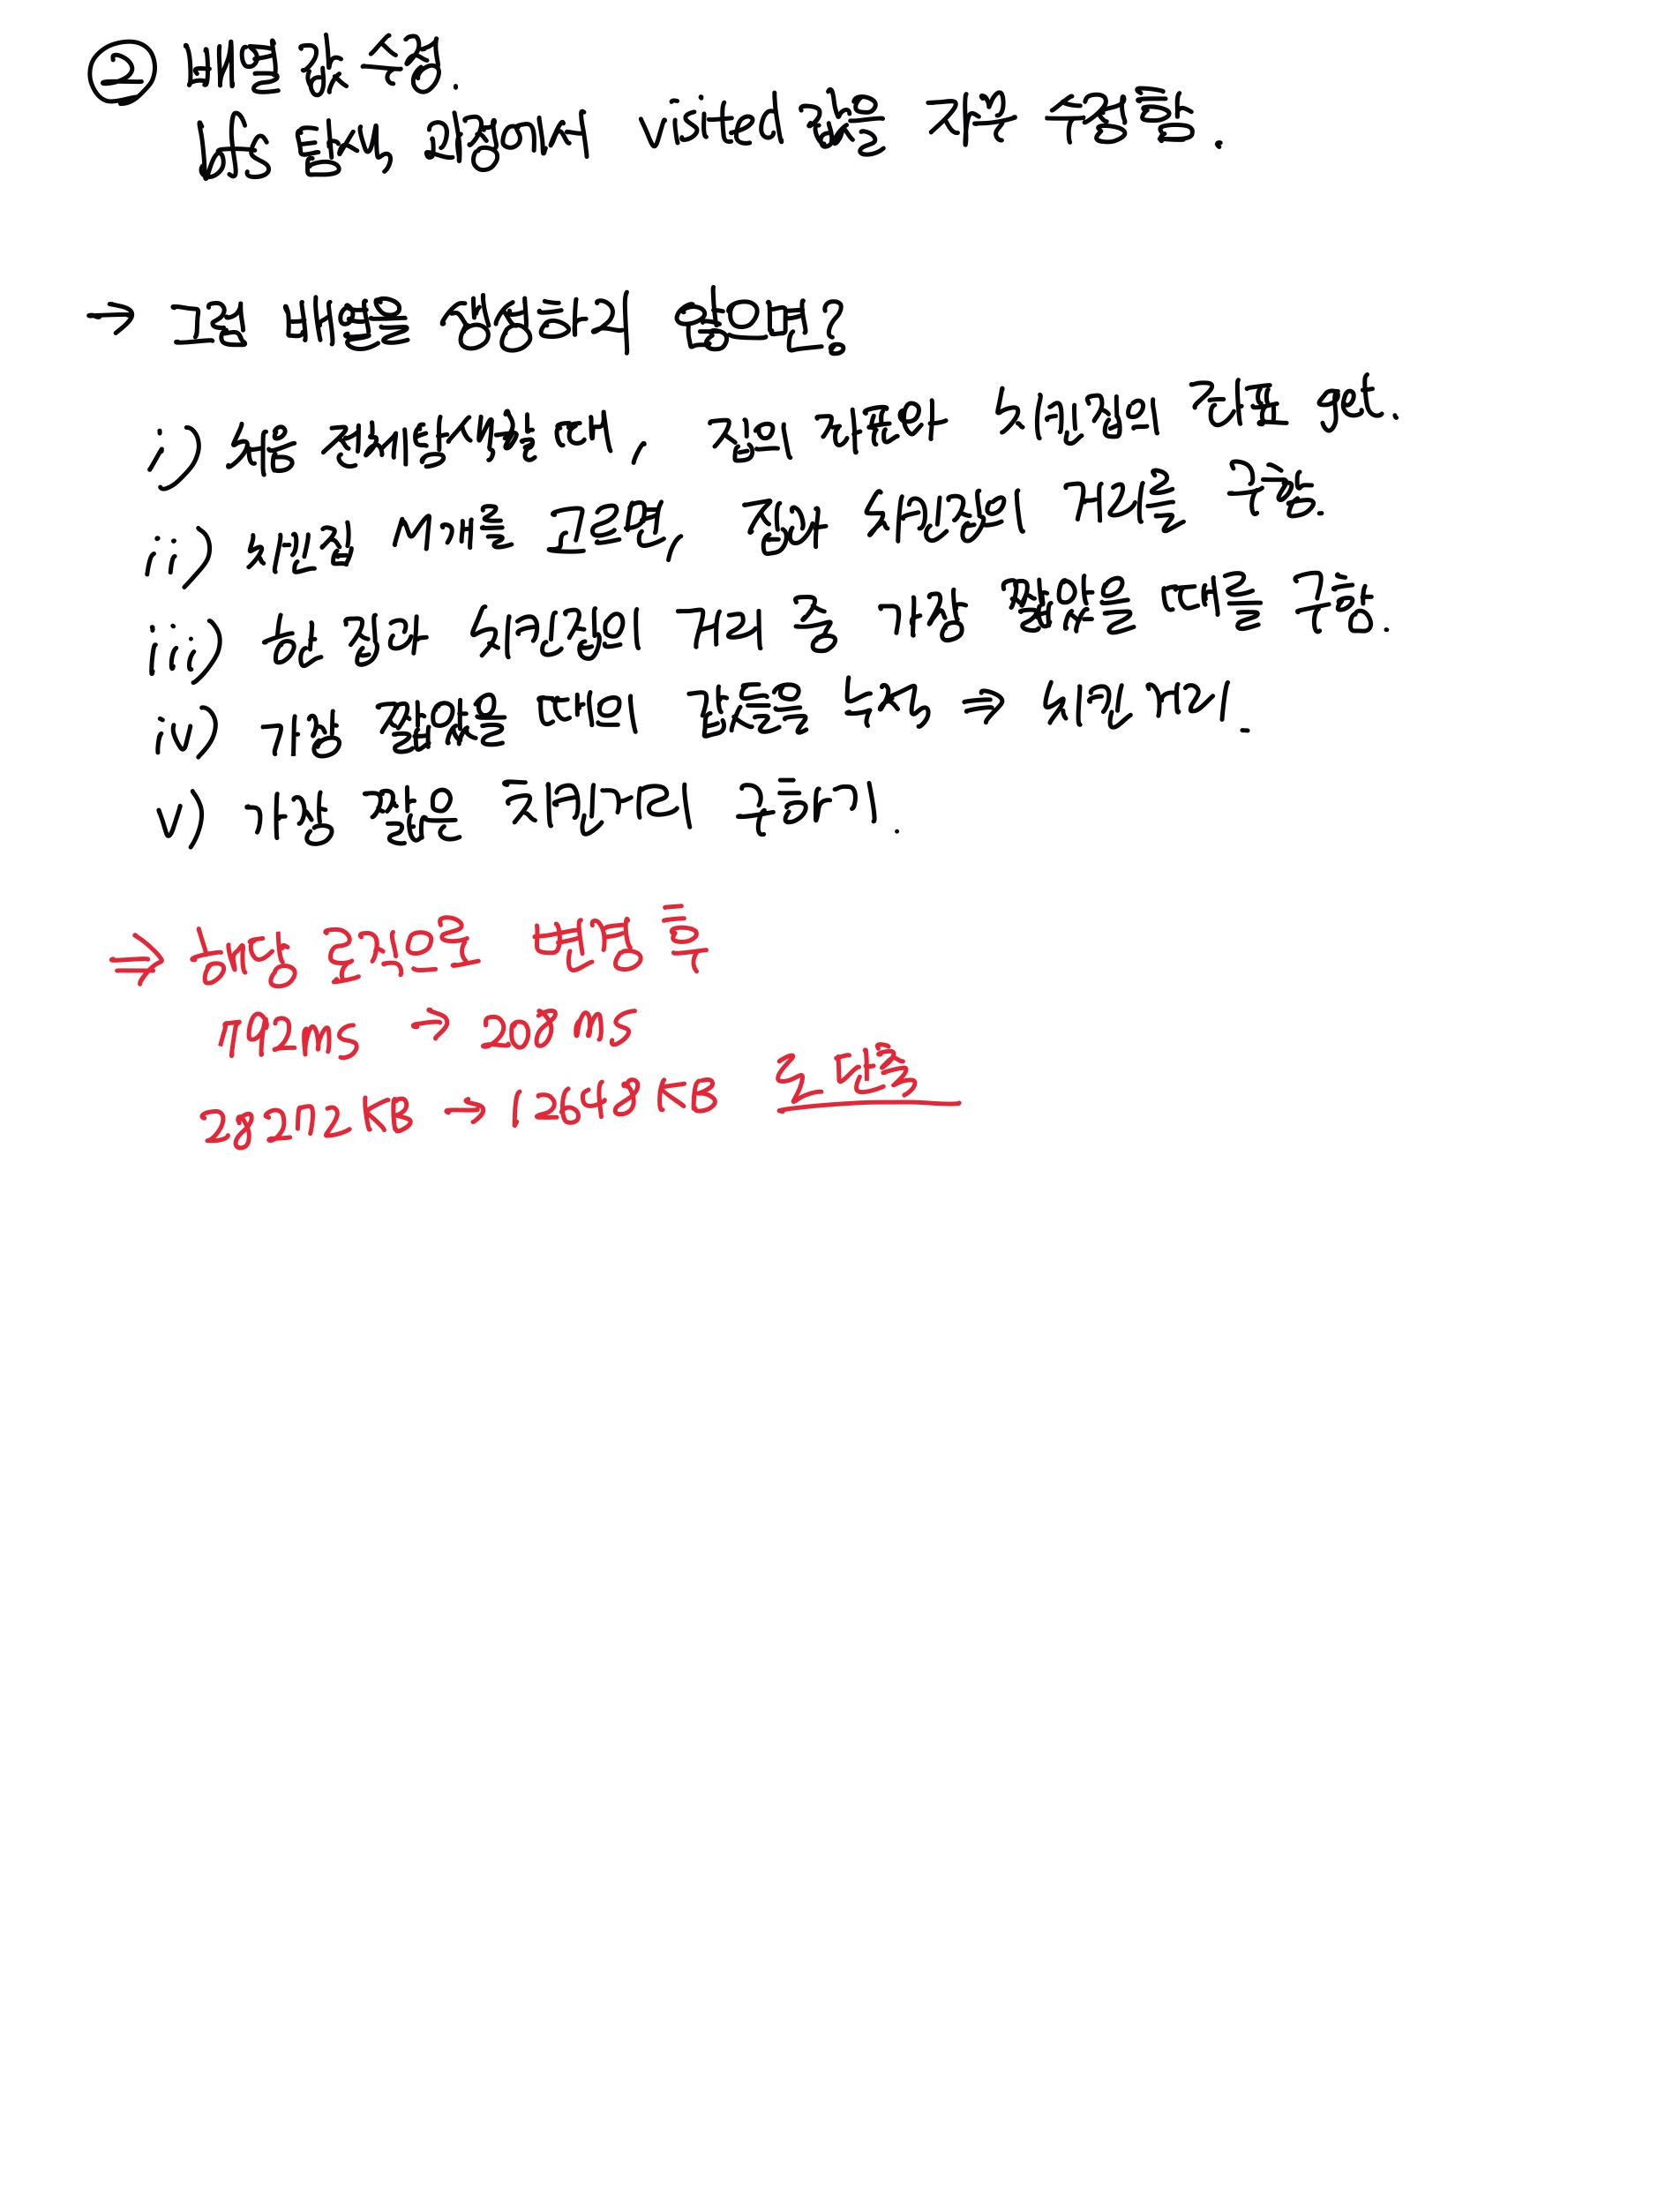 ② 배열 값 수정.
bfs 탐색 과정에서 visited 값을 자꾸 수정함.
→ 그럼 배열을 생성하지 않으면?
i) 처음 전체탐색할 때, 집의 좌표와 치킨집의 좌표 get.
ii) 치킨집 M개를 고르면, 집과 치킨집의 거리를 구함.
iii) 한 집과 치킨집의 거리 중 가장 짧았을 때를 구함.
iv) 가장 짧았을 때의 값들을 누적 ⇒ 치킨 거리.
v) 가장 짧은 치킨거리 구하기.
⇒ 해당 로직으로 변경 후
792ms → 208ms
28272KB → 12648KB 로 단축